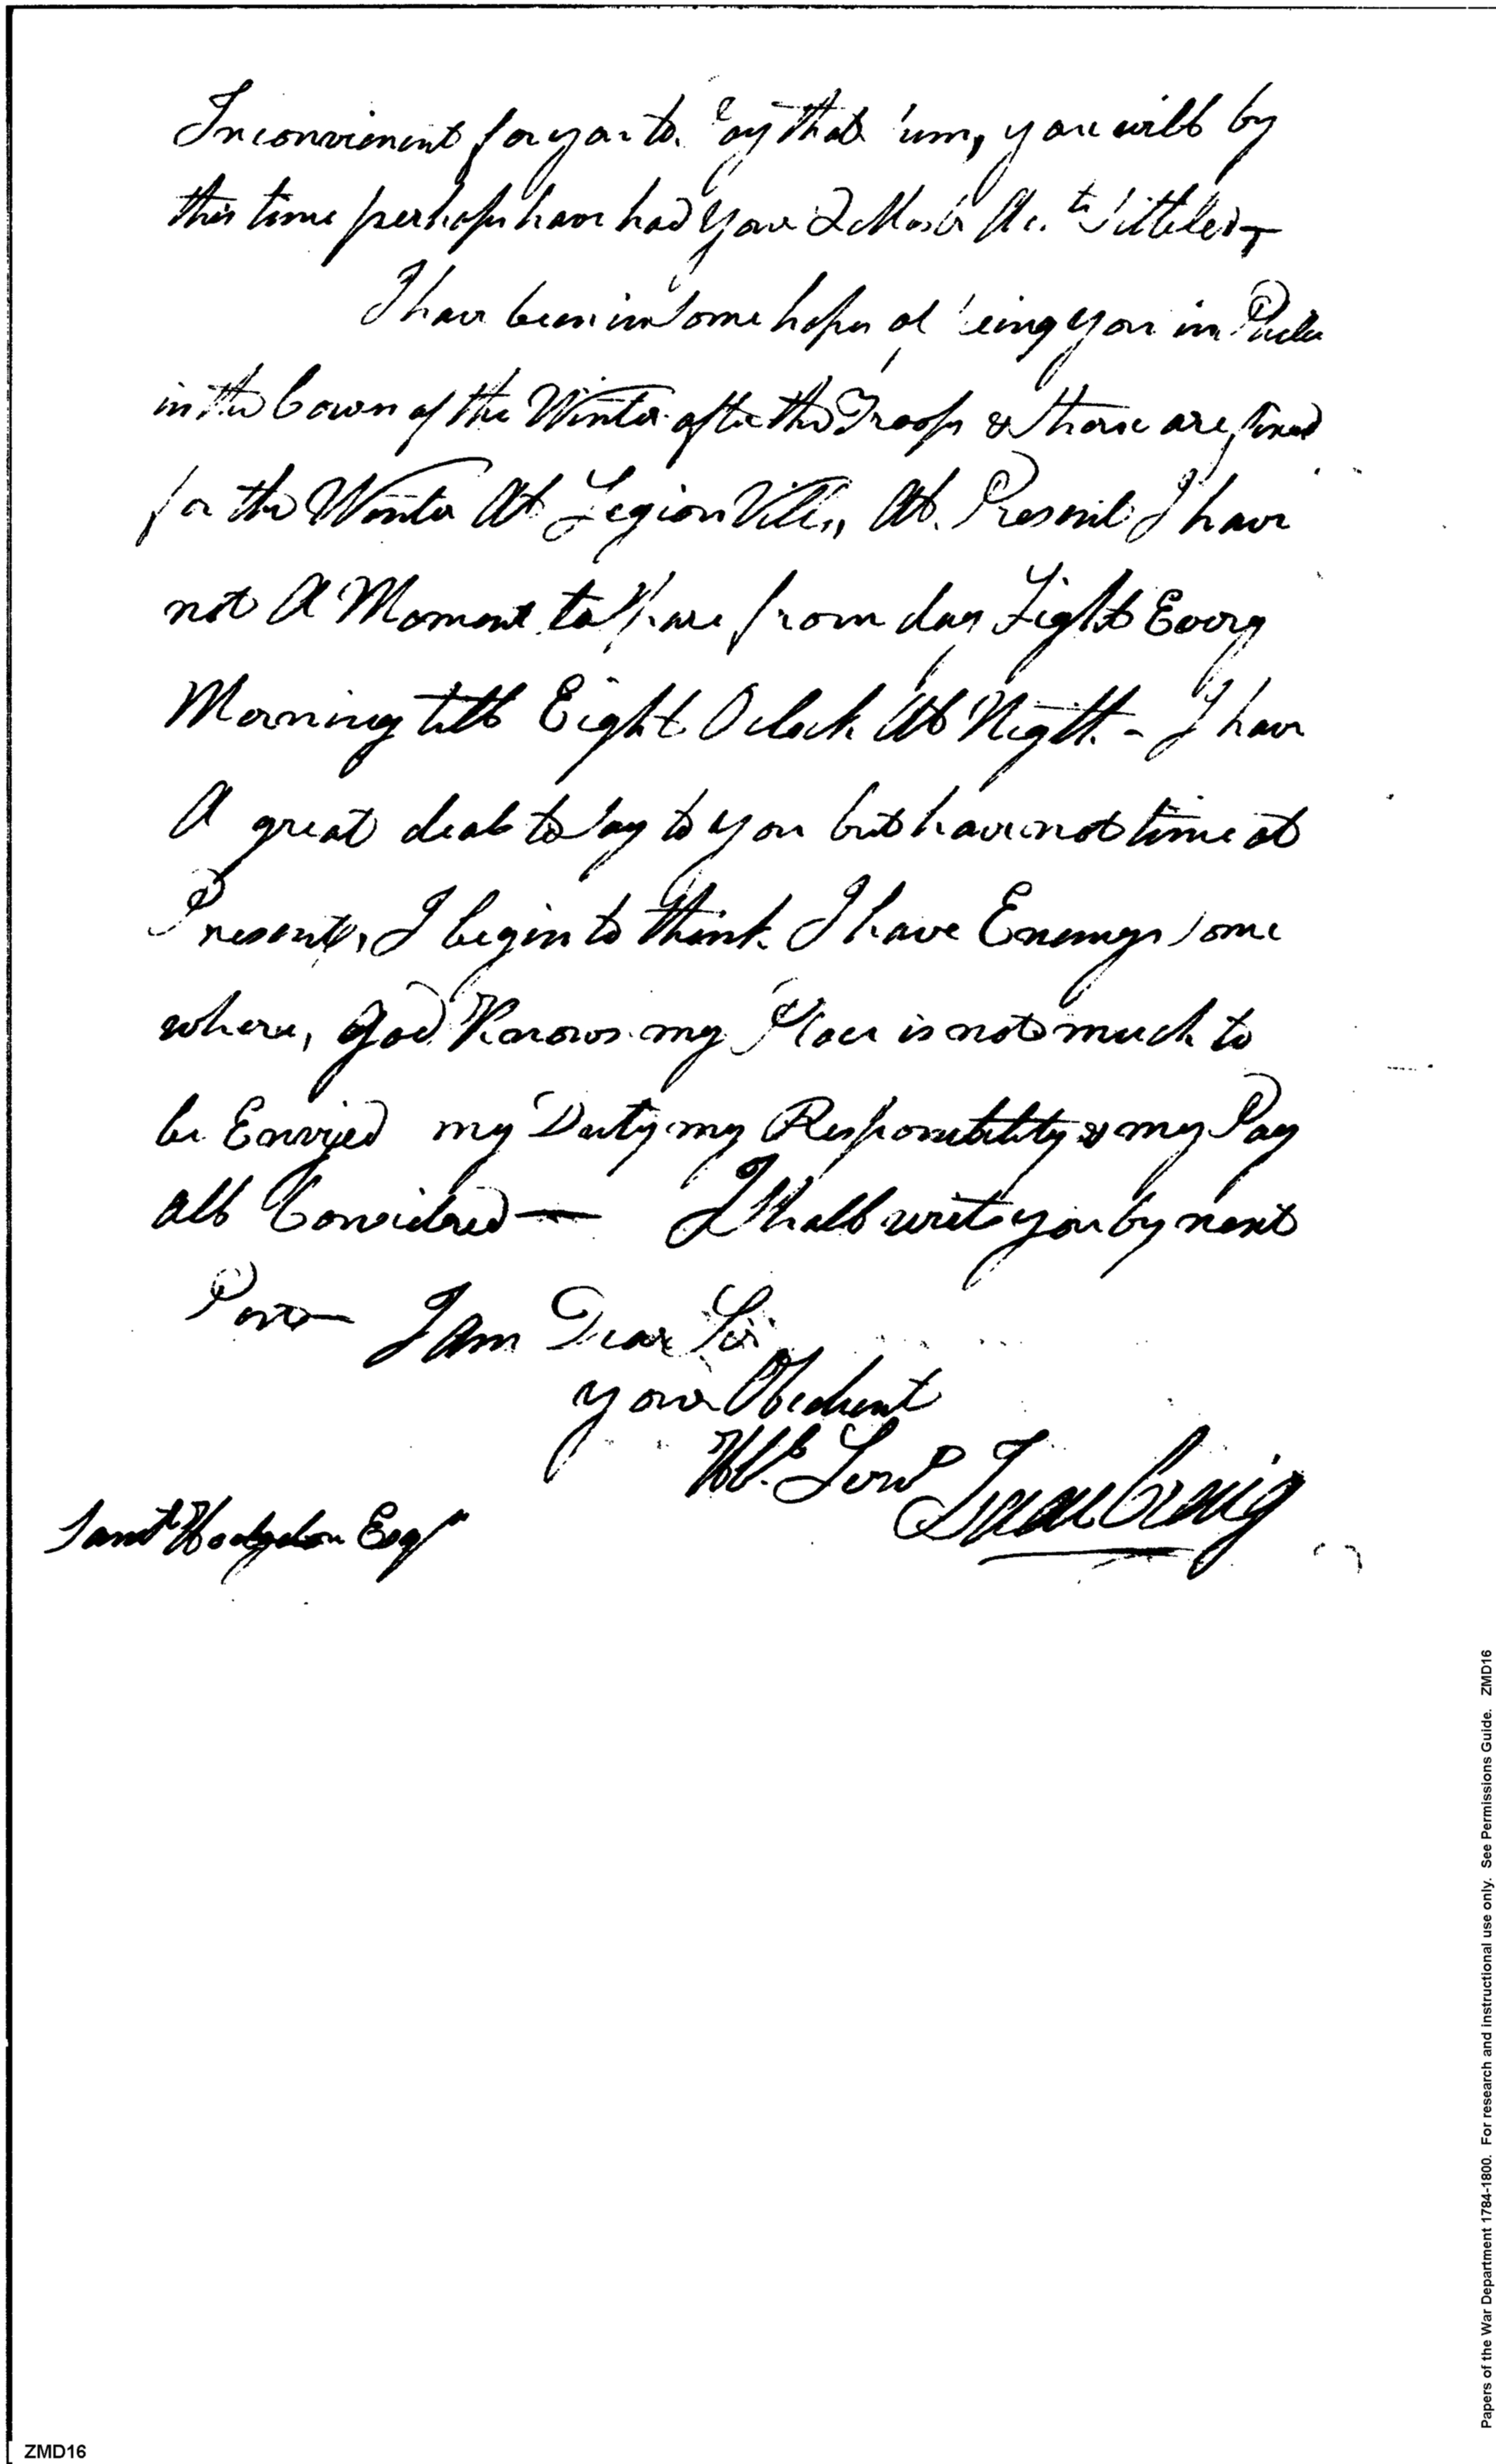 Inconvienent for you to Pay that Sum, you will by
this time perhaps have had your Acts Sittled
I have been in Some hopes of Seing you in Phila
in the Cours of the Winter after the Troops & those are fixed
for the Winter At Legion Ville, At Present I have
not A Moment to Spare from day Light Every
Morning till Eight Oclock At Night - I have
A great deal to Say to you but have not time at
Present, I begin to think I have Enemys Some
where, God Knows my Place is not much to
be Envyed my Duty my Responsibility & my Pay
all Considered — I Shall write you by next
Post — I am Dear Sir
your Obedient
Hble Servt Isaac Craig
Saml Hodgdon Esqr
Papers of the War Department 1784-1800. For research and instructional use only. See Permissions Guide. ZMD16
ZMD16